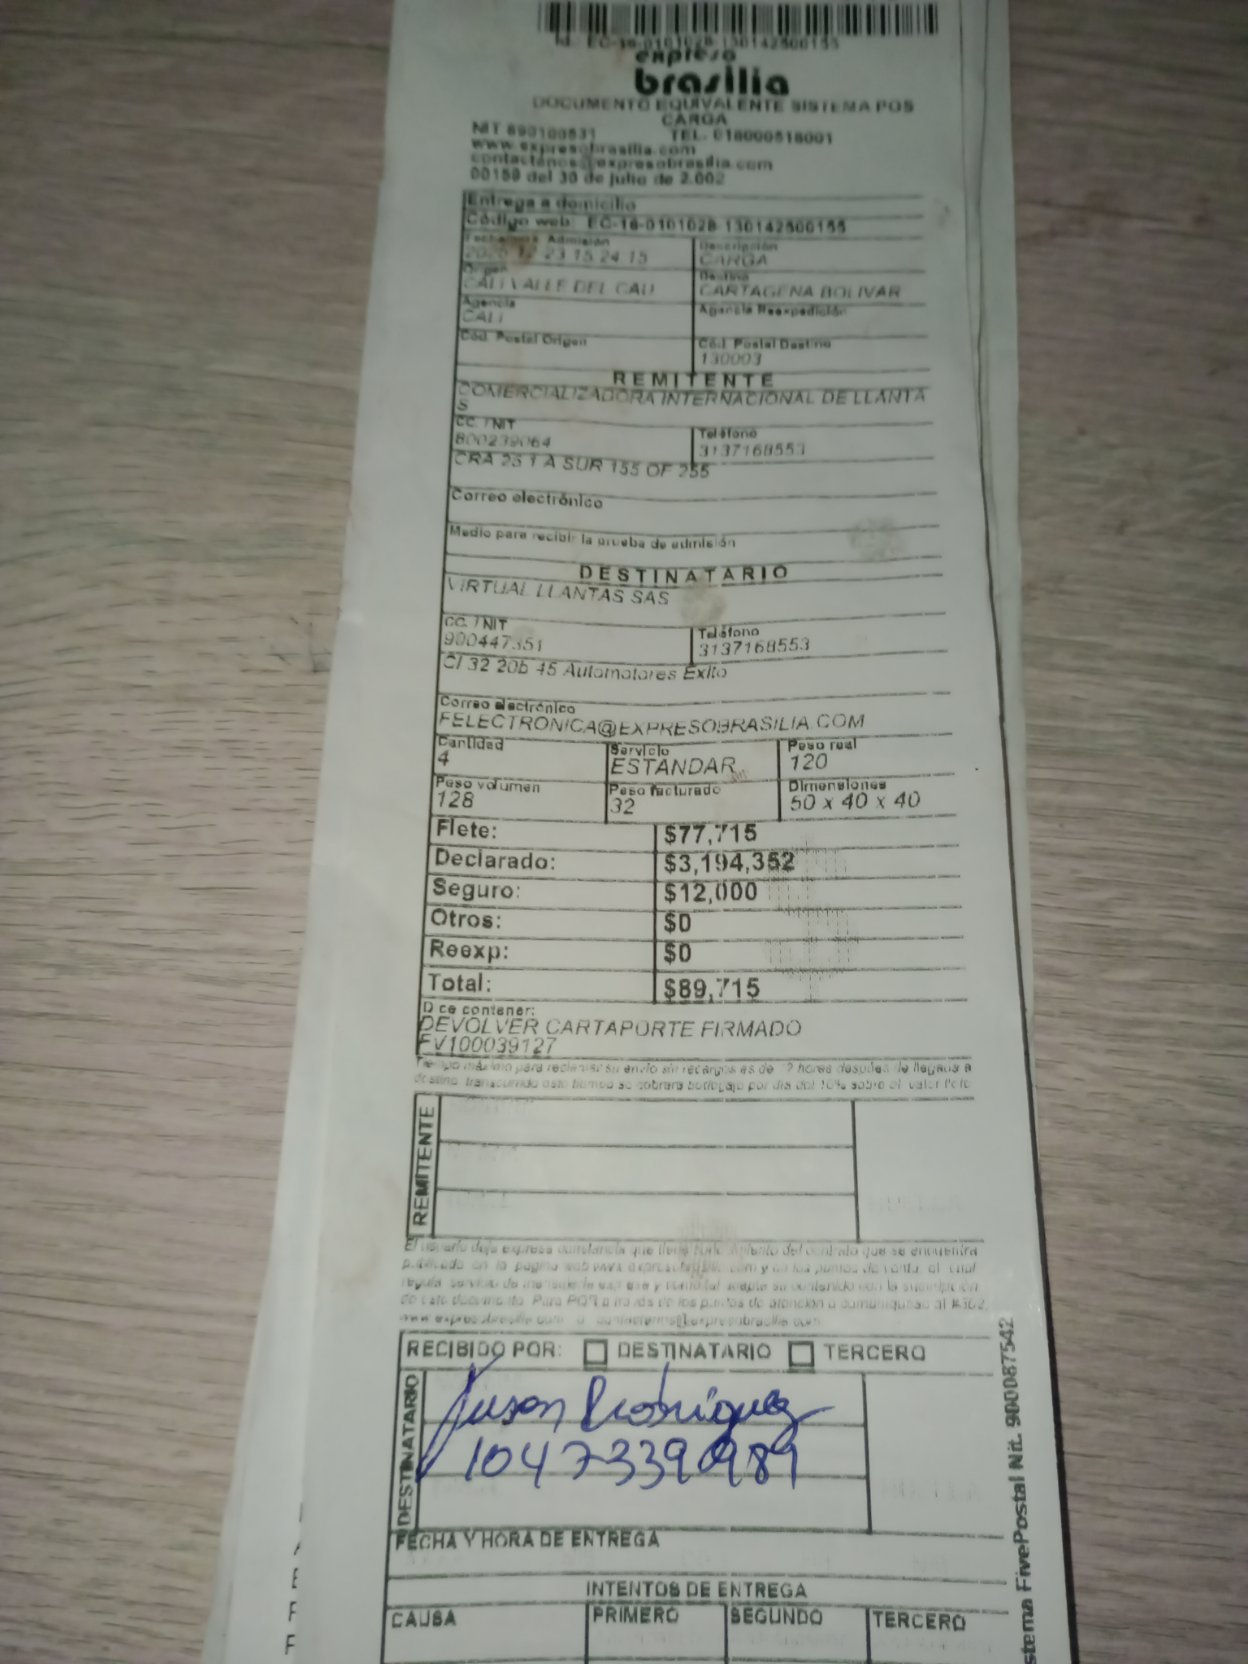 Id: EC-16-0101028-130142500155
expreso
brasilia
DOCUMENTO EQUIVALENTE SISTEMA POS
CARGA
NIT 890100531 TEL. 018000518001
www.expresobrasilia.com
contactenos@expresobrasilia.com
00159 del 30 de julio de 2.002
Entrega a domicilio
Código web: EC-16-0101028-130142500155
Admisión Descripción
23 15 24 15 CARGA
Origen Destino
CALI VALLE DEL CAU CARTAGENA BOLIVAR
Agencia Agencia Reexpedición
CALI
Cód. Postal Origen Cód. Postal Destino
130003
REMITENTE
COMERCIALIZADORA INTERNACIONAL DE LLANTA
S
CC. / NIT Teléfono
800239064 3137168553
CRA 25 1 A SUR 155 OF 255
Correo electrónico
Medio para recibir la prueba de admisión
DESTINATARIO
VIRTUAL LLANTAS SAS
CC. / NIT Teléfono
900447351 3137168553
Cl 32 20b 45 Automotores Exito
Correo electrónico
FELECTRONICA@EXPRESOBRASILIA.COM
Cantidad Servicio Peso real
4 ESTANDAR 120
Peso volumen Peso facturado Dimensiones
128 32 50 x 40 x 40
Flete: $77,715
Declarado: $3,194,352
Seguro: $12,000
Otros: $0
Reexp: $0
Total: $89,715
Dice contener:
DEVOLVER CARTAPORTE FIRMADO
FV100039127
Tiempo máximo para reclamar su envío sin recargos es de horas después de llegada a
destino, transcurrido este tiempo se cobrará bodegaje por día del 10% sobre el valor flete
REMITENTE
El usuario deja expresa constancia que tiene del contrato que se encuentra
publicado en la pagina web www.expresobrasilia.com y en los puntos de venta, el cual
regula servicio de y acepta su contenido con la suscripción
de este documento. Para PQR a través de los puntos de atención o comuniquese al #502,
www.expresobrasilia.com o contactenos@expresobrasilia.com
RECIBIDO POR: DESTINATARIO TERCERO
DESTINATARIO
Rodriguez
FECHA Y HORA DE ENTREGA
INTENTOS DE ENTREGA
CAUSA PRIMERO SEGUNDO TERCERO
stema FivePostal Nit. 900087542